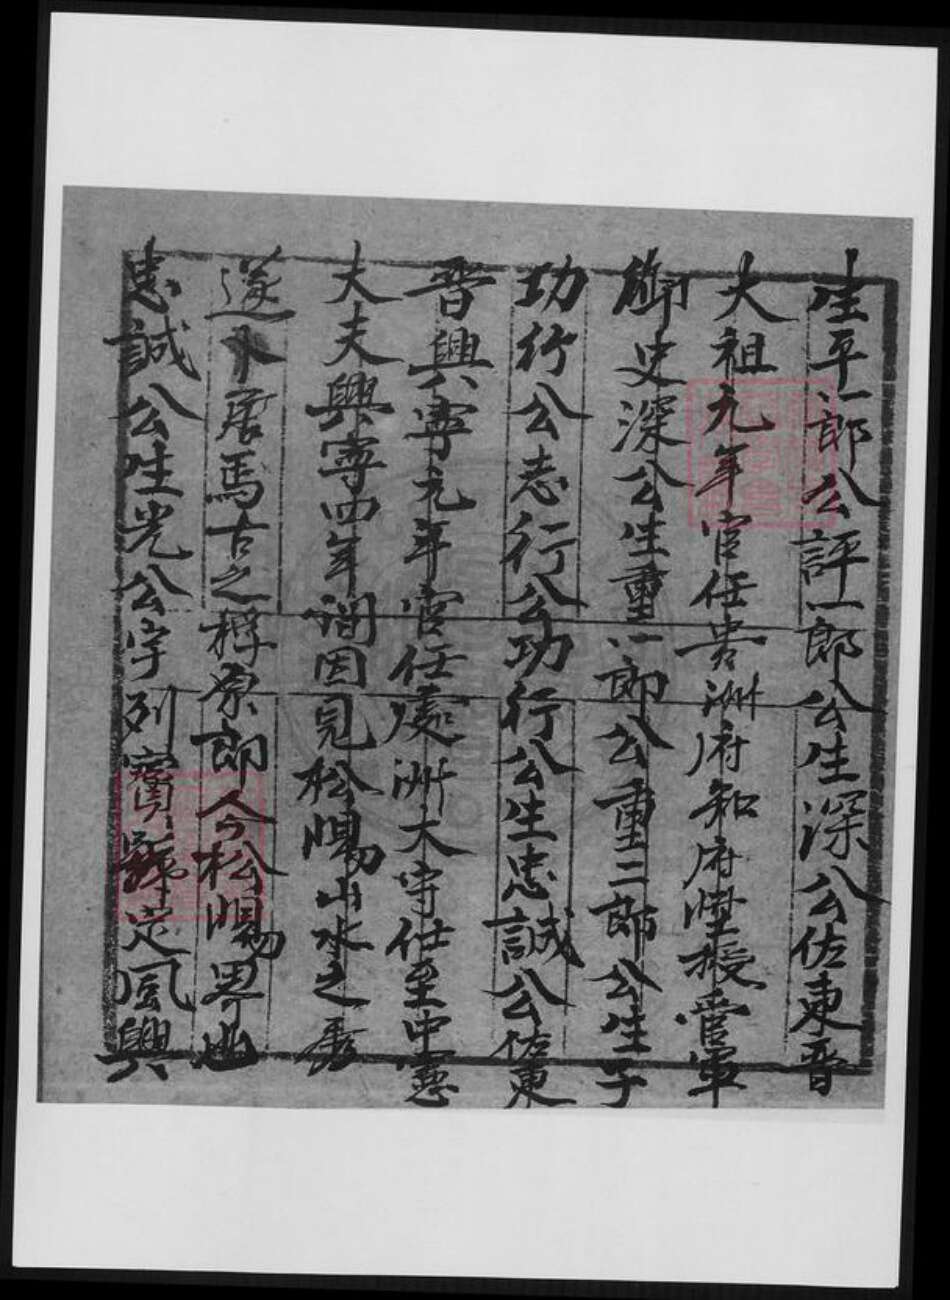 生平一郎公評一郎公生深公佐東晉
大祖九年官任貴洲府知府陞授管軍
御史深公生重一郎公重二郎公生子
功行公志行公功行公生忠誠公佐東
晉興寧元年官任處洲大守任至中憲
大夫興寧四年調因見松陽山水之秀
遂卜居焉古之稱原郎今松陽界也
忠誠公生光公字列賓號定風興